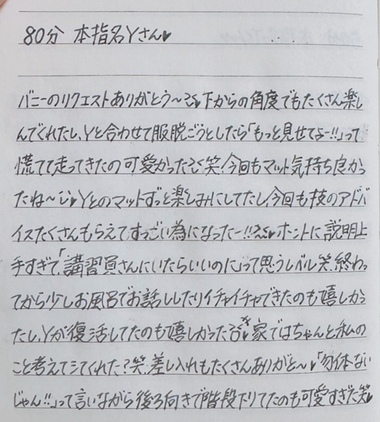 80分 本指名Yさん♥
バニーのリクエストありがとう〜♡下からの角度でもたくさん楽し
んでくれたし、Yと合わせて服脱ごうとしたら「もっと見せてよー!!」って
慌てて走ってきたの可愛かった♡笑!今回もマット気持ち良かっ
たね〜♡Yとのマットずっと楽しみにしてたし今回も技のアドバ
イスたくさんもらえてすっごい為になったー!!♡ホントに説明上
手すぎて、「講習員さんにいたらいいのに」って思うレベル笑、終わっ
てから少しお風呂でお話ししたりイチャイチャできたのも嬉しかっ
たし、Yが復活してたのも嬉しかった♡♥家ではちゃんと私の
こと考えてシてくれた?笑、差し入れもたくさんありがと〜♥「勿体ない
じゃん!!」って言いながら後ろ向きで階段下りてたのも可愛すぎた笑♥